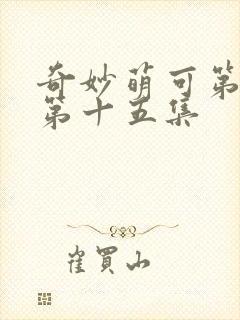 奇妙萌可第
第十五集
崔买山